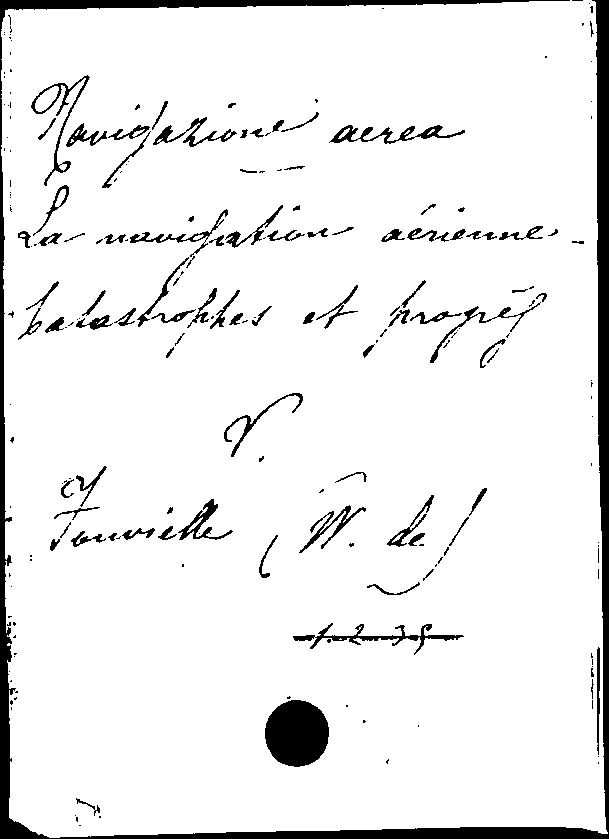 Navigazione aerea
La navigation aérienne -
Catastrophes et progrès
V.
Fonvielle (W. de)
1. 2. 35